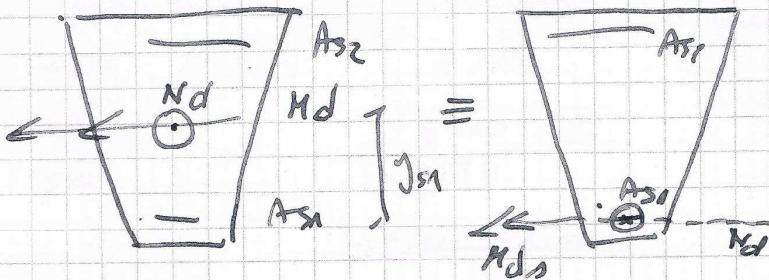 As2
Nd
Md
≡
ys1
As1
As2
As1
Mds
Nd